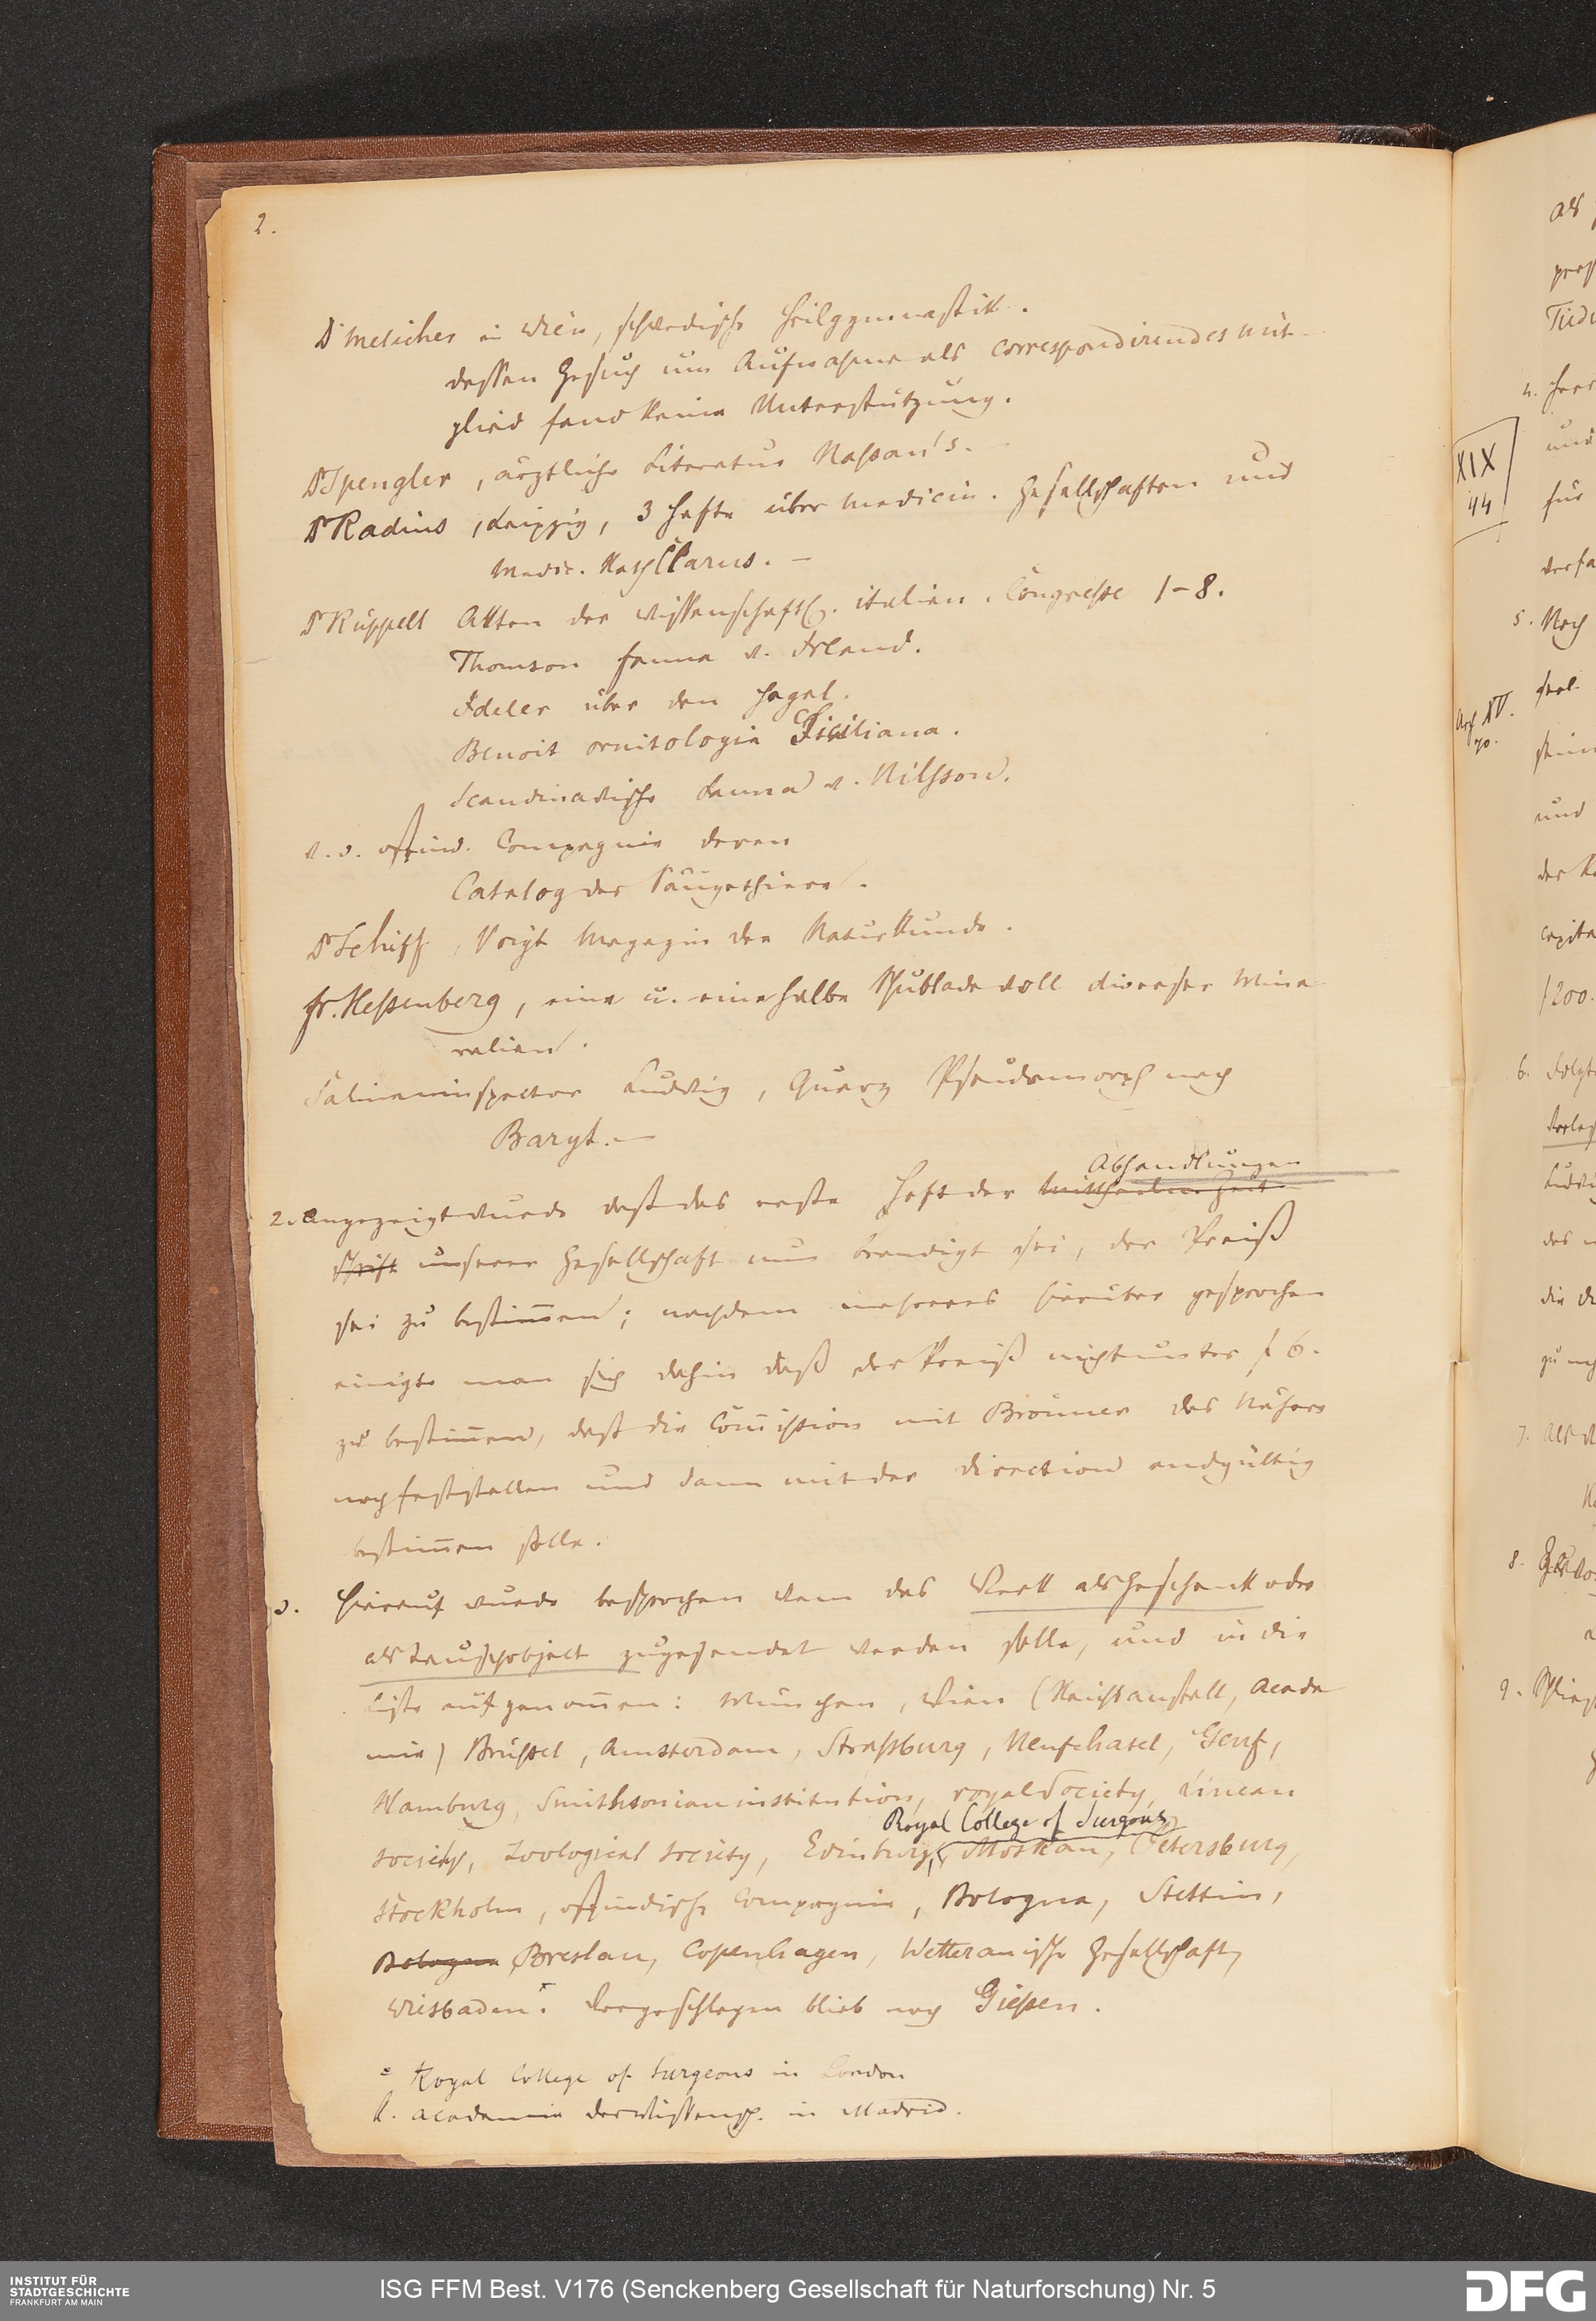 2.
Dr Melicher in Wien, schwedische Heilgymnastik.
dessen Gesuch um Aufnahme als correspondirendes Mit-
glied fand keine Unterstützung.
Dr Spengler, ärztliche Literatur Nassau's. —
Dr Radius, Leipzig, 3 Hefte über medicin. Gesellschaften und
Medic. Rath Clarus. —
Dr Rüppell Akten der wissenschaftl. italien. Congresse 1-8.
Thomson fauna v. Irland.
Ideler über den Hagel.
Benoit ornitologia Siciliana.
Scandinavische Fauna v. Nilsson.
v. d. ostind. Compagnie deren
Catalog der Säugethiere.
Dr Schiff, Voigt Magazin der Naturkunde.
Fr. Hessenberg, eine u. eine halbe Schublade voll diverser Mine-
ralien.
Salineninspector Ludwig, Quarz Pseudomorph nach
Baryt. —
Abhandlungen
2. Angezeigt wurde daß das erste Heft der Zeit-
schrift unserer Gesellschaft nun beendigt sei, der Preiß
sei zu bestimmen; nachdem mehreres hierüber gesprochen
einigte man sich dahin daß der Preiß nicht unter f 6.
zu bestimmen, daß die Commission mit Brönner das Nähere
noch feststellen und dann mit der Direction endgültig
bestimmen solle.
3. Hierauf wurde besprochen wem das Werk als Geschenk oder
als Tauschobject zugesendet werden solle, und in die
Liste aufgenommen: München, Wien (Reichsanstalt, Acade-
mie) Brüssel, Amsterdam, Strassburg, Neufchatel, Genf,
Hamburg, Smithsonian institution, royal Society, Linean
Royal College of Surgeons
society, Zoological society, Edinburg, Moskau, Petersburg,
Stockholm, ostindische Compagnie, Bologna, Stettin,
Bologna Breslau, Copenhagen, Wetterauische Gesellschaft,
Wiesbaden. Vorgeschlagen blieb noch Giessen.
Royal College of Surgeons in London
k. academie der Wissensch. in Madrid.
als
Tied
4. Herr
und
XIX
44
für
5. Nach
und
capita
200.
6. Folgt
7. Als
8.
9.
INSTITUT FÜR
STADTGESCHICHTE
FRANKFURT AM MAIN
ISG FFM Best. V176 (Senckenberg Gesellschaft für Naturforschung) Nr. 5
DFG